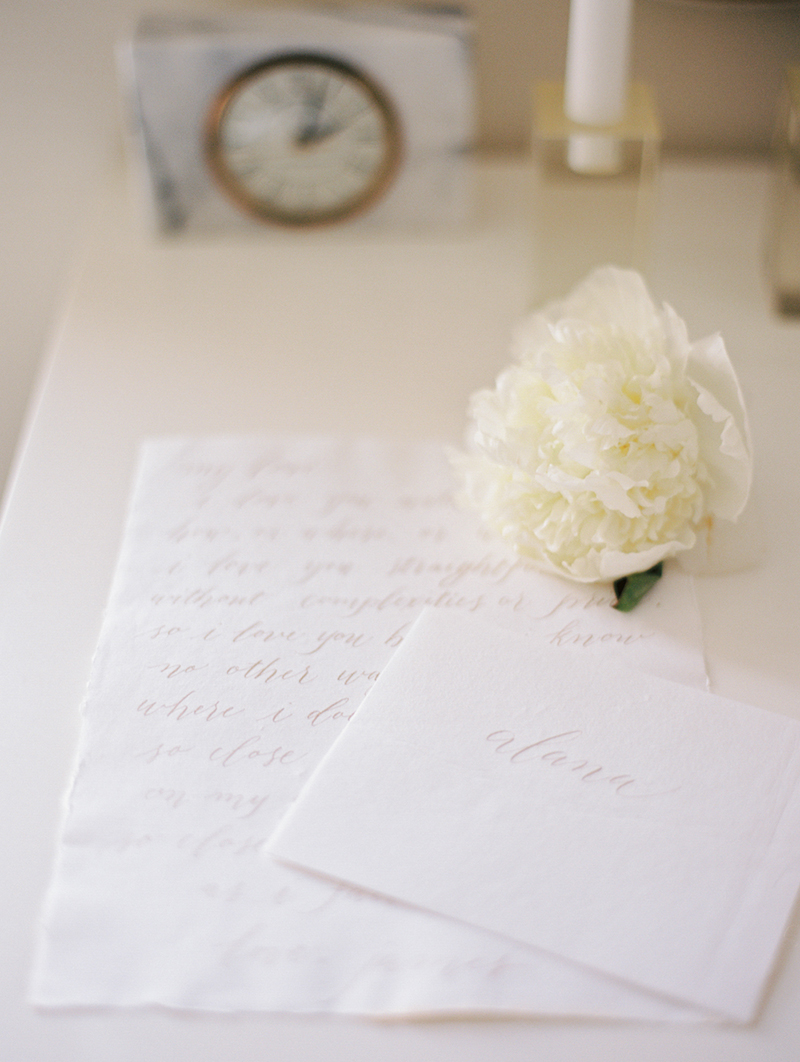 i love you
how, or where, or
i love you straightf
without complexities or
so i love you b know
no other wa
where i do
so close
on my
so close
as i
alana